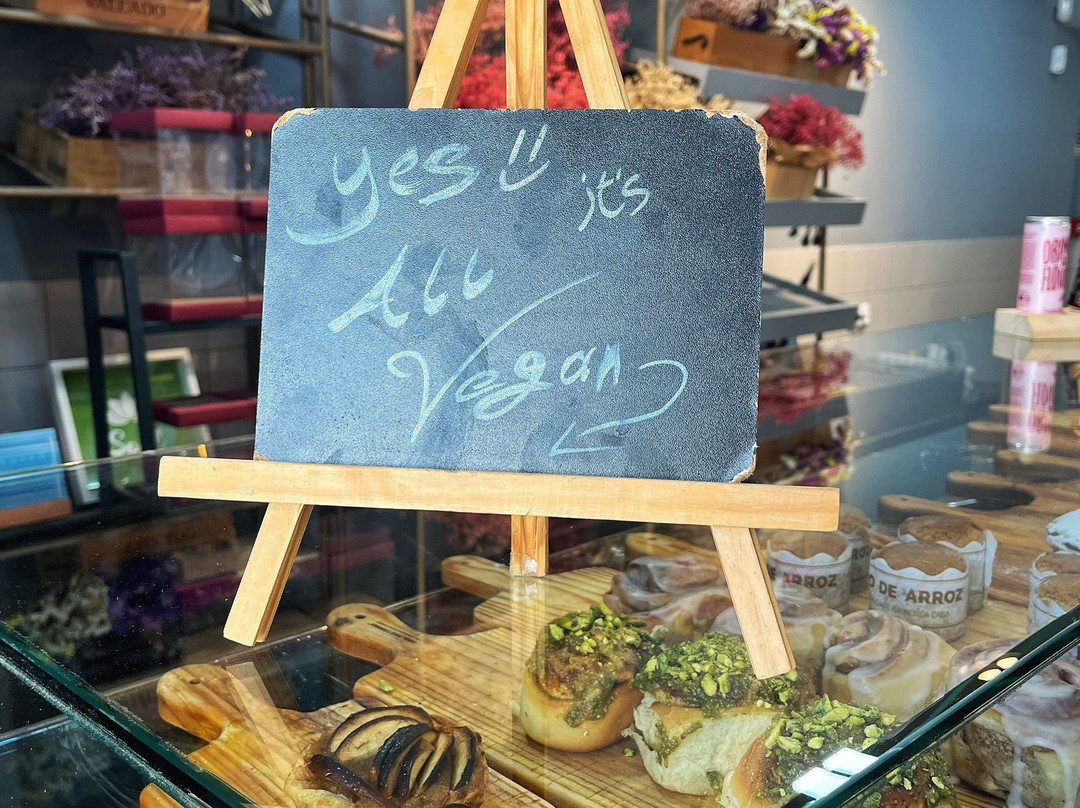 VALLADO
yes ü it's
All
Vegan
DE ARROZ